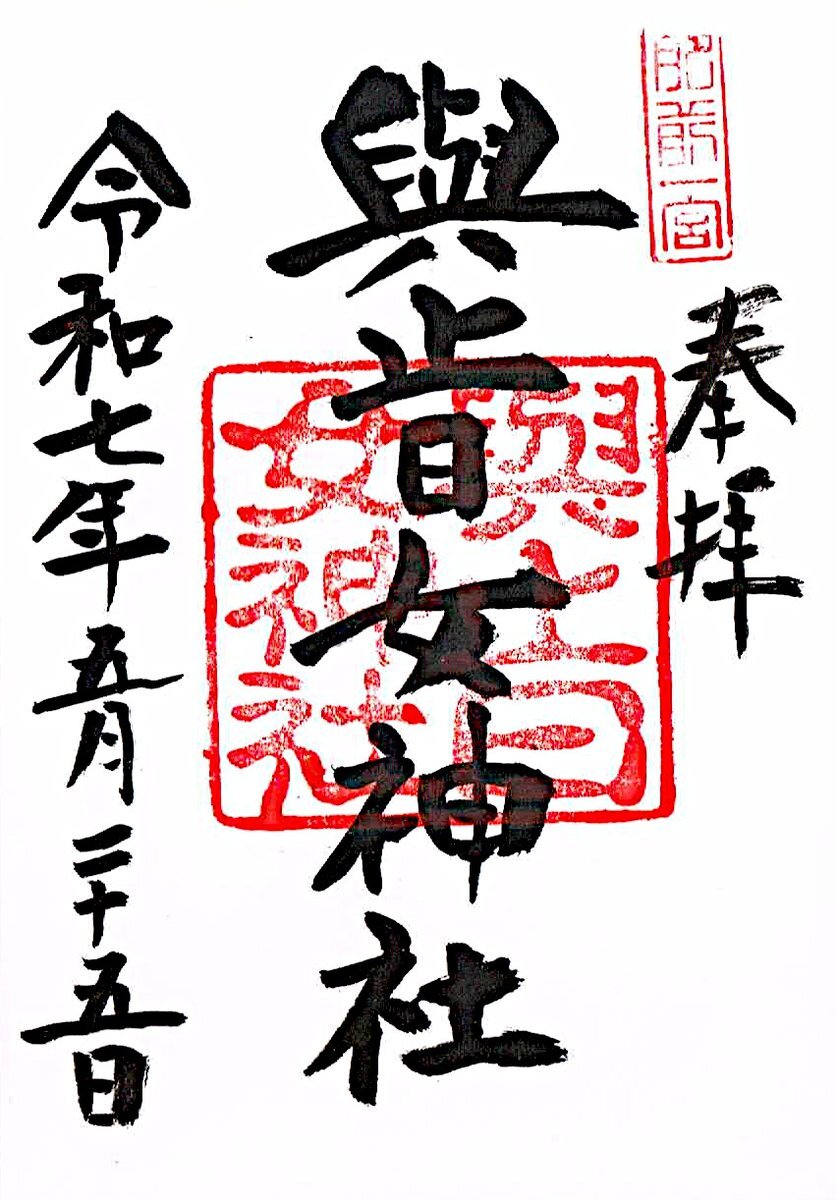 肥前一宮
奉拝
與止日女神社
與止日女神社
令和七年五月二十五日